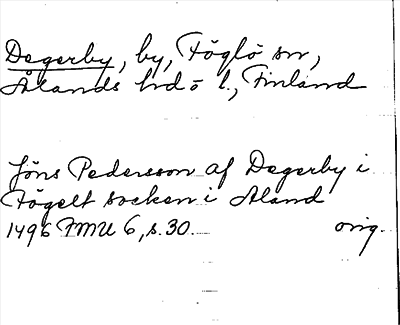 Degerby, by, Föglö sn,
Ålands hd o l., Finland
Jöns Pedersson af Degerby i
Fögelt socken i Aland
1496 FMU 6, s. 30. orig.